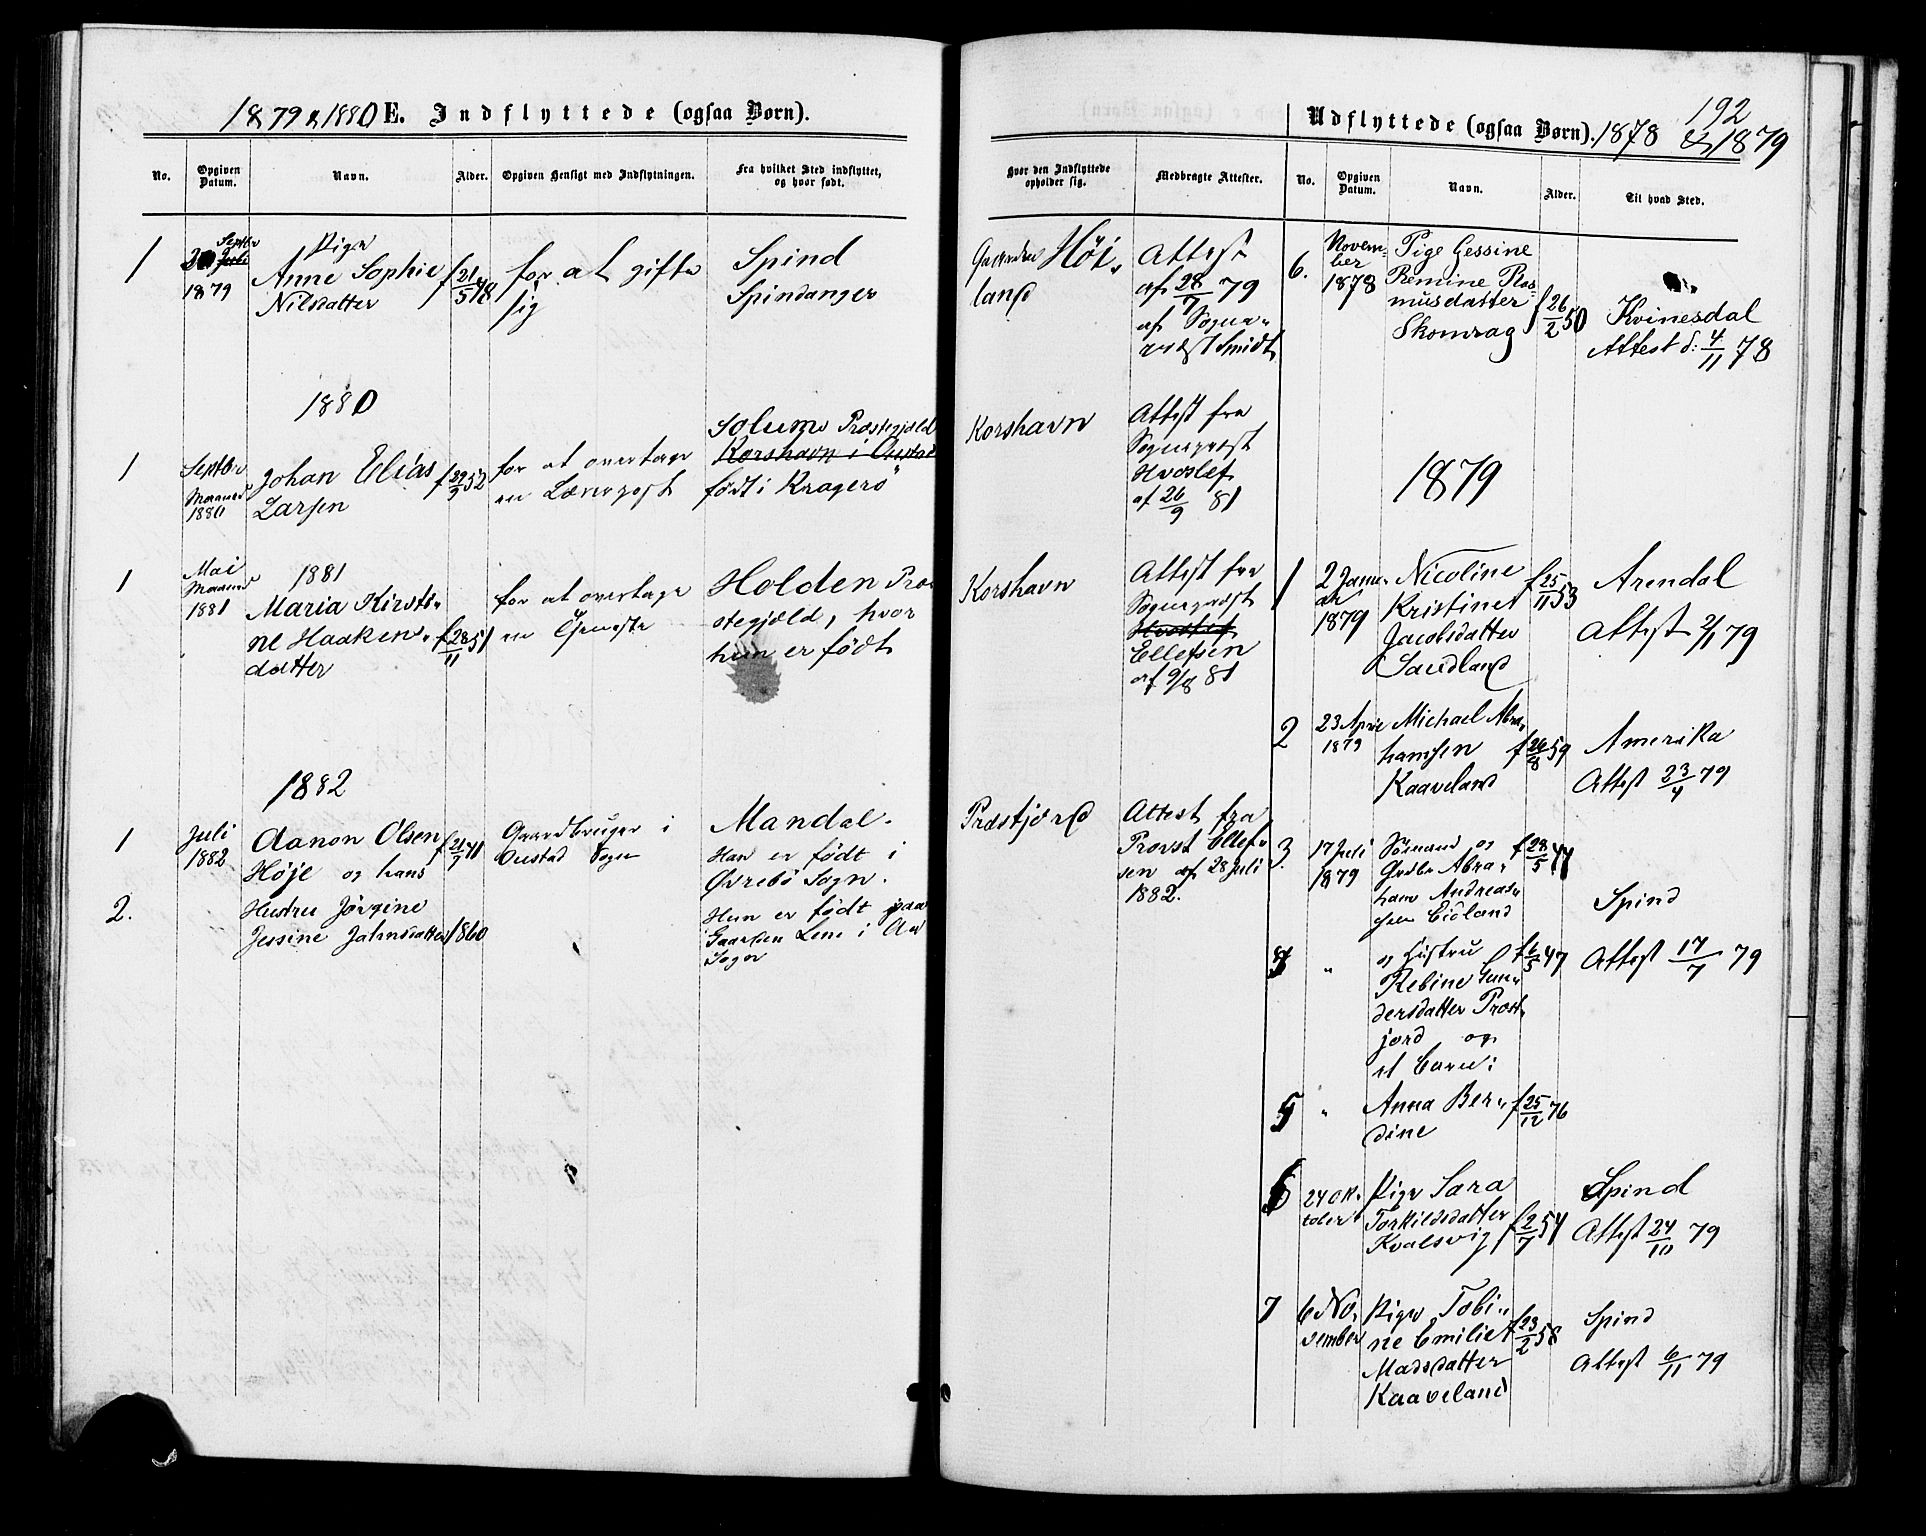 1879 & 1880 E. Indflyttede (ogsaa Børn).
No. Opgiven Datum. Navn. Alder. Opgiven Hensigt med Indflytningen. Fra hvilket Sted indflyttet, og hvor født.
1
Septbr
1879
Pige
Anne Sophie
Nilsdatter
for at gifte
sig
Spind
Spindanger
1880
1
Septbr
Maaned
1880
Johan Elias
Larsen
f 29/9 52
for at overtage
en Lærerpost
Solum Præstegjæld
Korshavn i Oustad
født i Kragerö
1
Mai
Maaned
1881
1881
Maria Kirsti-
ne Haaken-
datter
f 28/11 51
for at overtage
en Tjeneste
Holden Præ
stegjæld, hvor
hun er født
1882
1
Juli
1882
Aanon Olsen
Höje og hans
f 21/7 41
Gaardbruger i
Oustad Sogn
Mandal.
Han er født i
Øvrebö Sogn.
2.
Hustru Jörgine
Jessine Jahnsdatter
1860
Hun er født paa
Gaarden Lene i Aa
Sogn
192
Udflyttede (ogsaa Børn). 1878 & 1879
Hvor den Indflyttede opholder sig. Medbragte Attester. No. Opgiven Datum. Navn. Alder. Til hvad Sted.
Gaarden Höi-
land
Attest
af 28/7 79
af Sogne-
præst Smidt
Korshavn
Attest fra
Sognepræst
Hvoslef
af 26/9 81
Korshavn
Attest fra
Sognepræst
Hvoslef
Ellefsen
af 9/8 81
Præstjord
Attest fra
Provst Ellef-
sen af 28 Juli
1882.
6.
Novem-
ber
1878
Pige Gessine
Remine Ras-
musdatter
Skomrag
f 26/2 50
Kvinesdal
Attest d: 4/11 78
1879
1
2 Janu-
ar
1879
Nicoline
Kristine
Jacobsdatter
Saudland
f 25/11 53
Arendal
Attest 2/1 79
2
23 April
1879
Michael Abra-
hamsen
Kaaveland
f 26/8 59
Amerika
Attest 23/4 79
3.
17 Juli
1879
Sömand og
Grdbr Abra-
ham Andreas-
sen Eidland
f 28/5 44
Spind
Attest 17/7 79
4
"
og Hustru
Rebine Gun-
dersdatter Præst-
jord og
et Barn:
f 6/5 47
5
"
Anna Ber-
dine
f 25/12 76
6
24 Ok-
tober
Pige Sara
Torkildsdatter
Kvalsvig
f 2/7 54
Spind
Attest 24/10 79
7
6 No-
vember
Pige Tobi-
ne Emilie
Madsdatter
Kaaveland
f 23/2 58
Spind
Attest 6/11 79